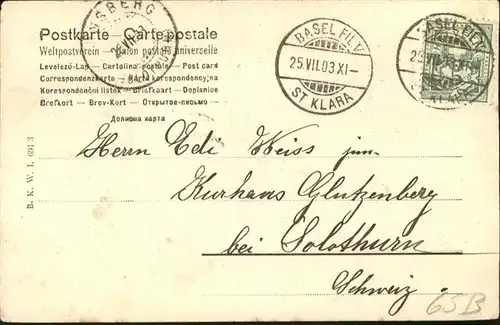 Postkarte - Carte postale
Weltpostverein - Union postale universelle
Levelező-Lap - Cartolina postale - Post card
Correspondenzkarte - Karta korespondencyjna
Korespondenční lístek - Briefkaart - Dopisnice
Brefkort - Brev-Kort - Открытое-письмо
Дописна карта
BASEL FIL. V
25.VII.03.XI-
ST KLARA
BASEL FIL
25.VII.03.XI-
B. K. W. I.
Herrn Edi Weiss jun.
Kurhaus Glutzenberg
bei Solothurn
Schweiz
65B